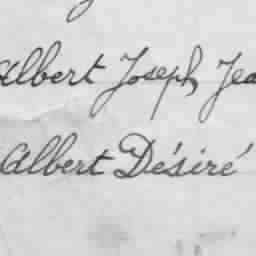 Albert Joseph Jea
Albert Désiré